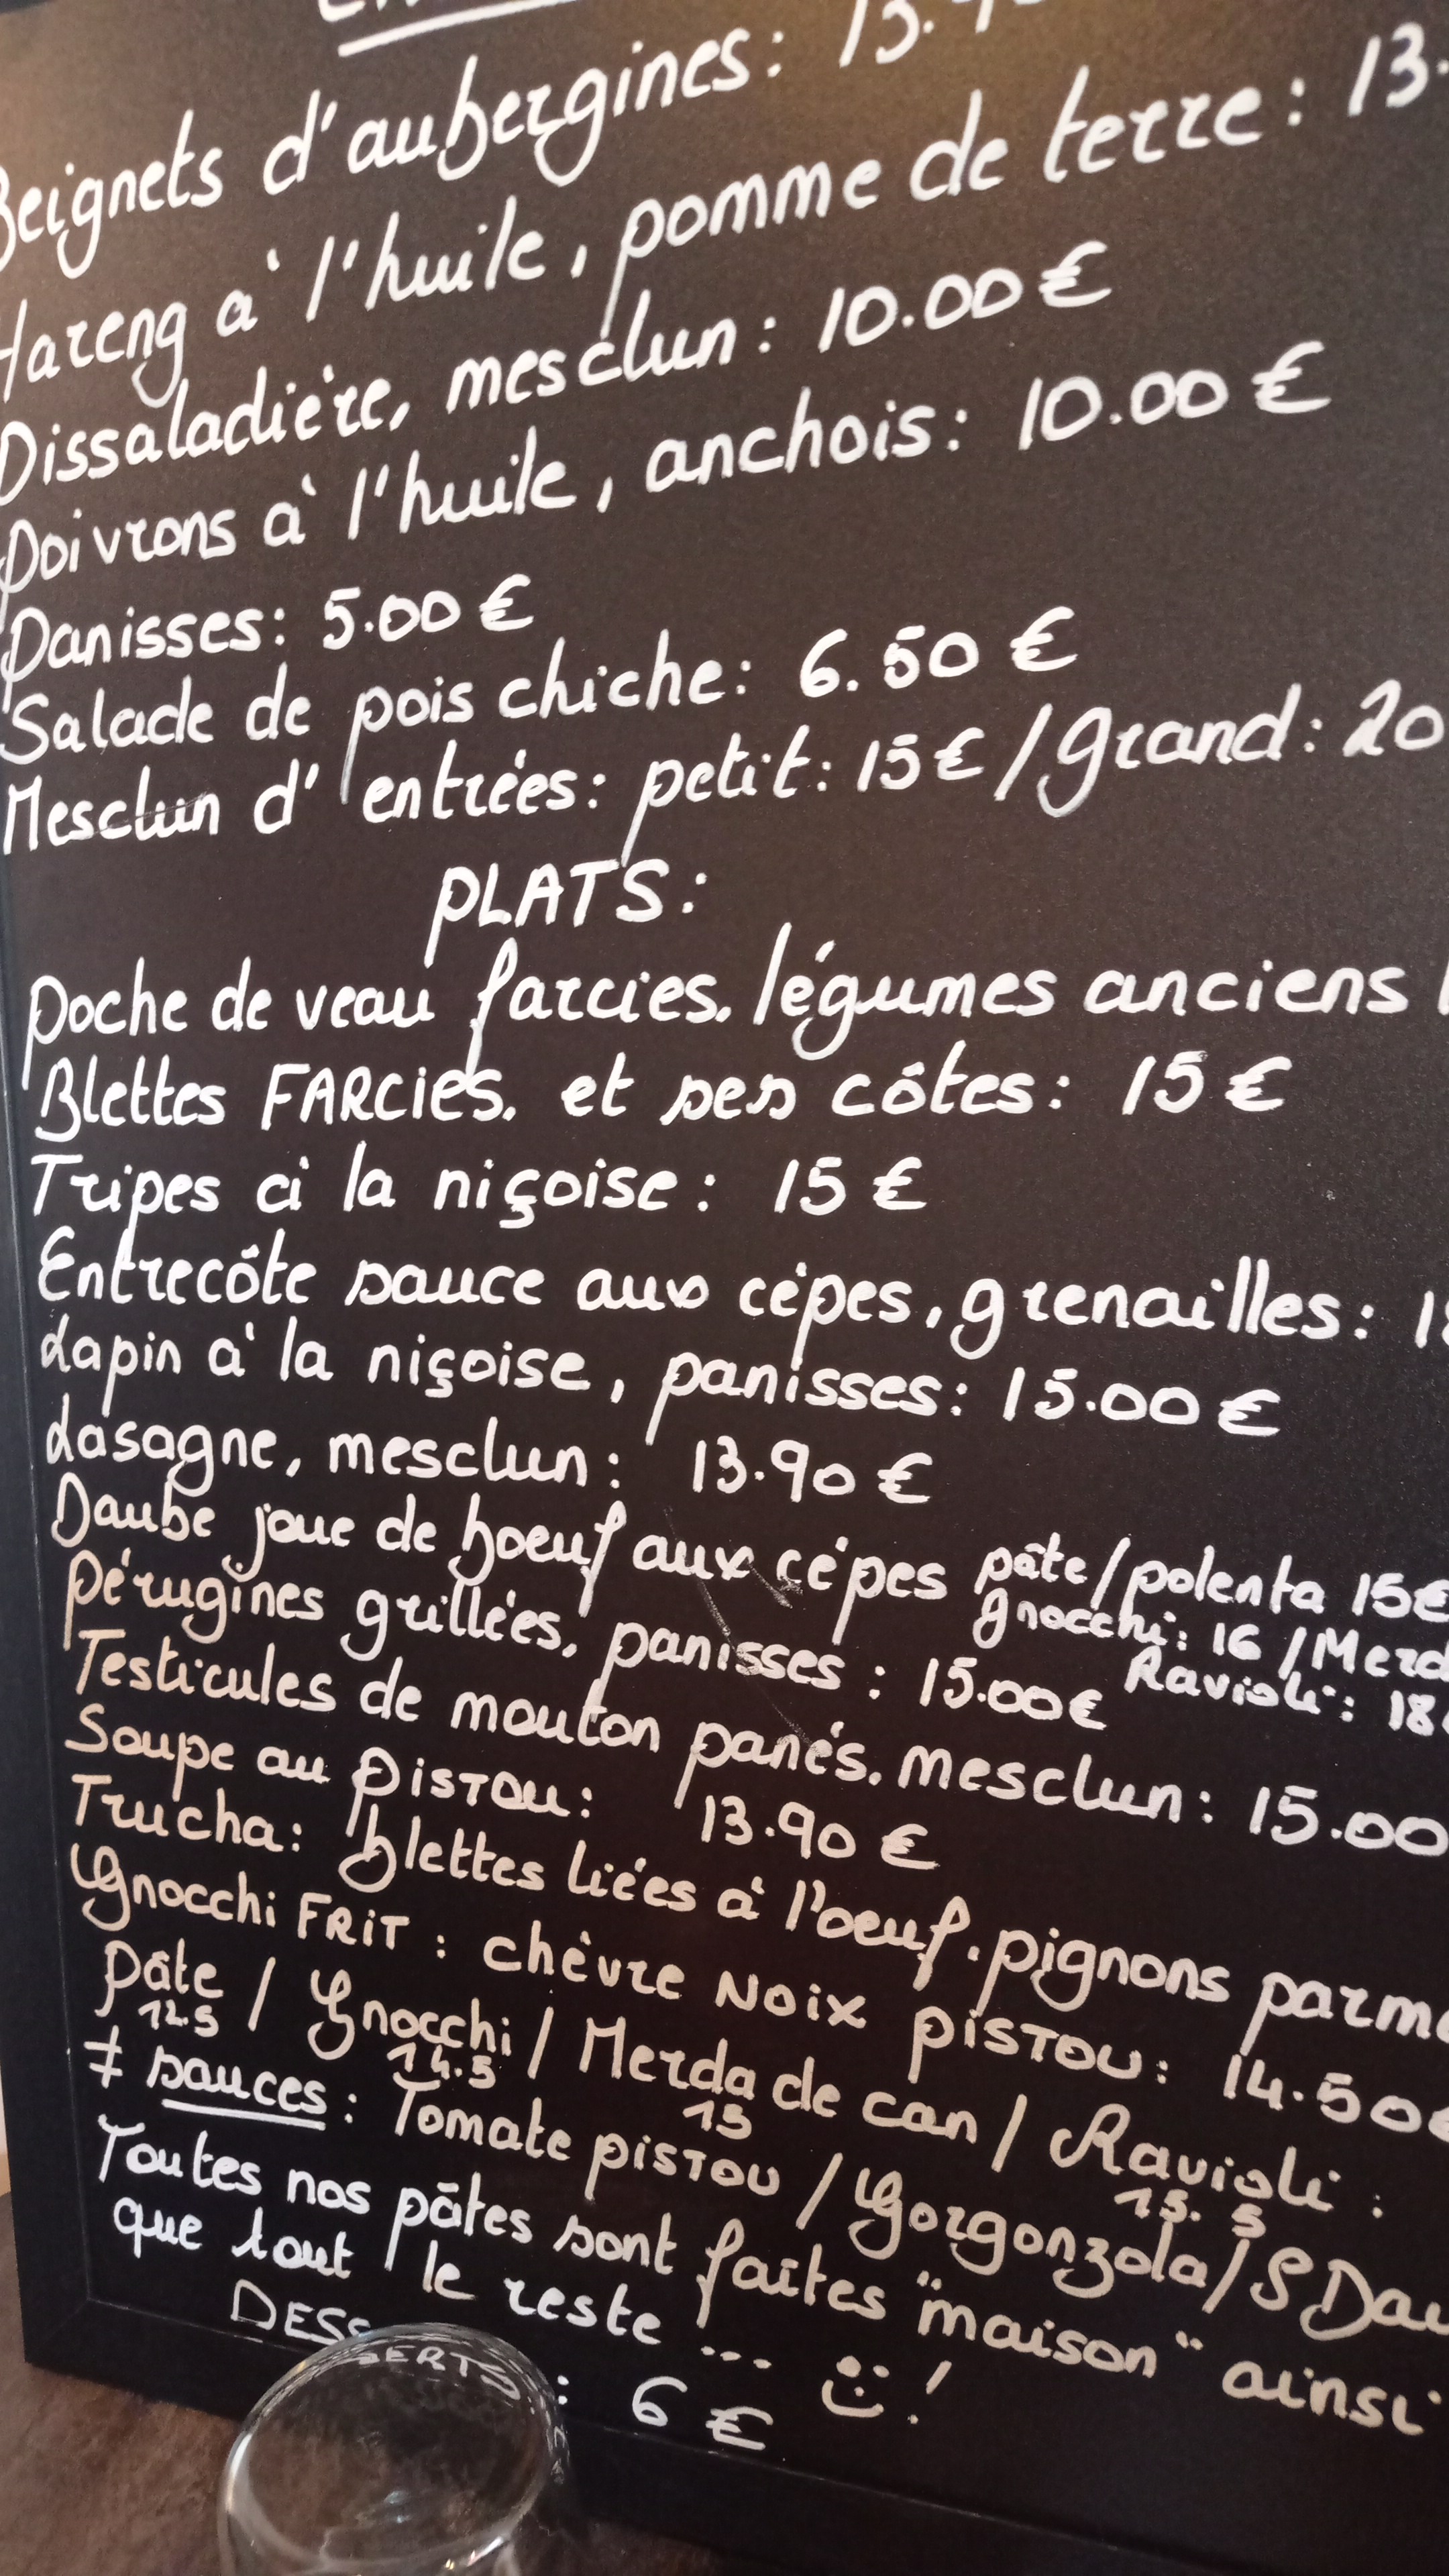 Beignets d'aubergines: 13.9
Hareng à l'huile, pomme de terre: 13.
Pissaladière, mesclun: 10.00 €
Poivrons à l'huile, anchois: 10.00 €
Panisses: 5.00 €
Salade de pois chiche: 6.50 €
Mesclun d'entrées: petit: 15 € / grand: 20
PLATS:
Poche de veau farcies. légumes anciens
Blettes FARCIES. et ses côtes: 15 €
Tripes à la niçoise: 15 €
Entrecôte sauce aux cèpes, grenailles: 1
Lapin à la niçoise, panisses: 15.00 €
Lasagne, mesclun: 13.90 €
Daube joue de boeuf aux cèpes pâte/polenta 15€
gnocchi: 16 / Merd
Ravioli: 18
Pérugines grillées. panisses: 15.00€
Testicules de mouton panés. mesclun: 15.00
Soupe au PISTOU: 13.90 €
Trucha: blettes liées à l'oeuf. pignons parm
Gnocchi FRIT: chèvre NOIX PISTOU: 14.50€
Pâte / Gnocchi / Merda de can / Ravioli:
12.5 14.5 15 15.5
≠ sauces: Tomate PISTOU / Gorgonzola / SDau
Toutes nos pâtes sont faites "maison" ainsi
que tout le reste ... !
DESSERTS: 6 €